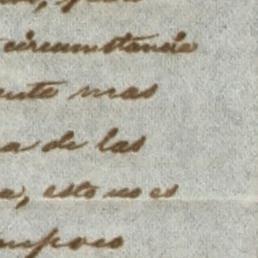 circumstancia
ente mas
a de las
a, esto no es
mpoco